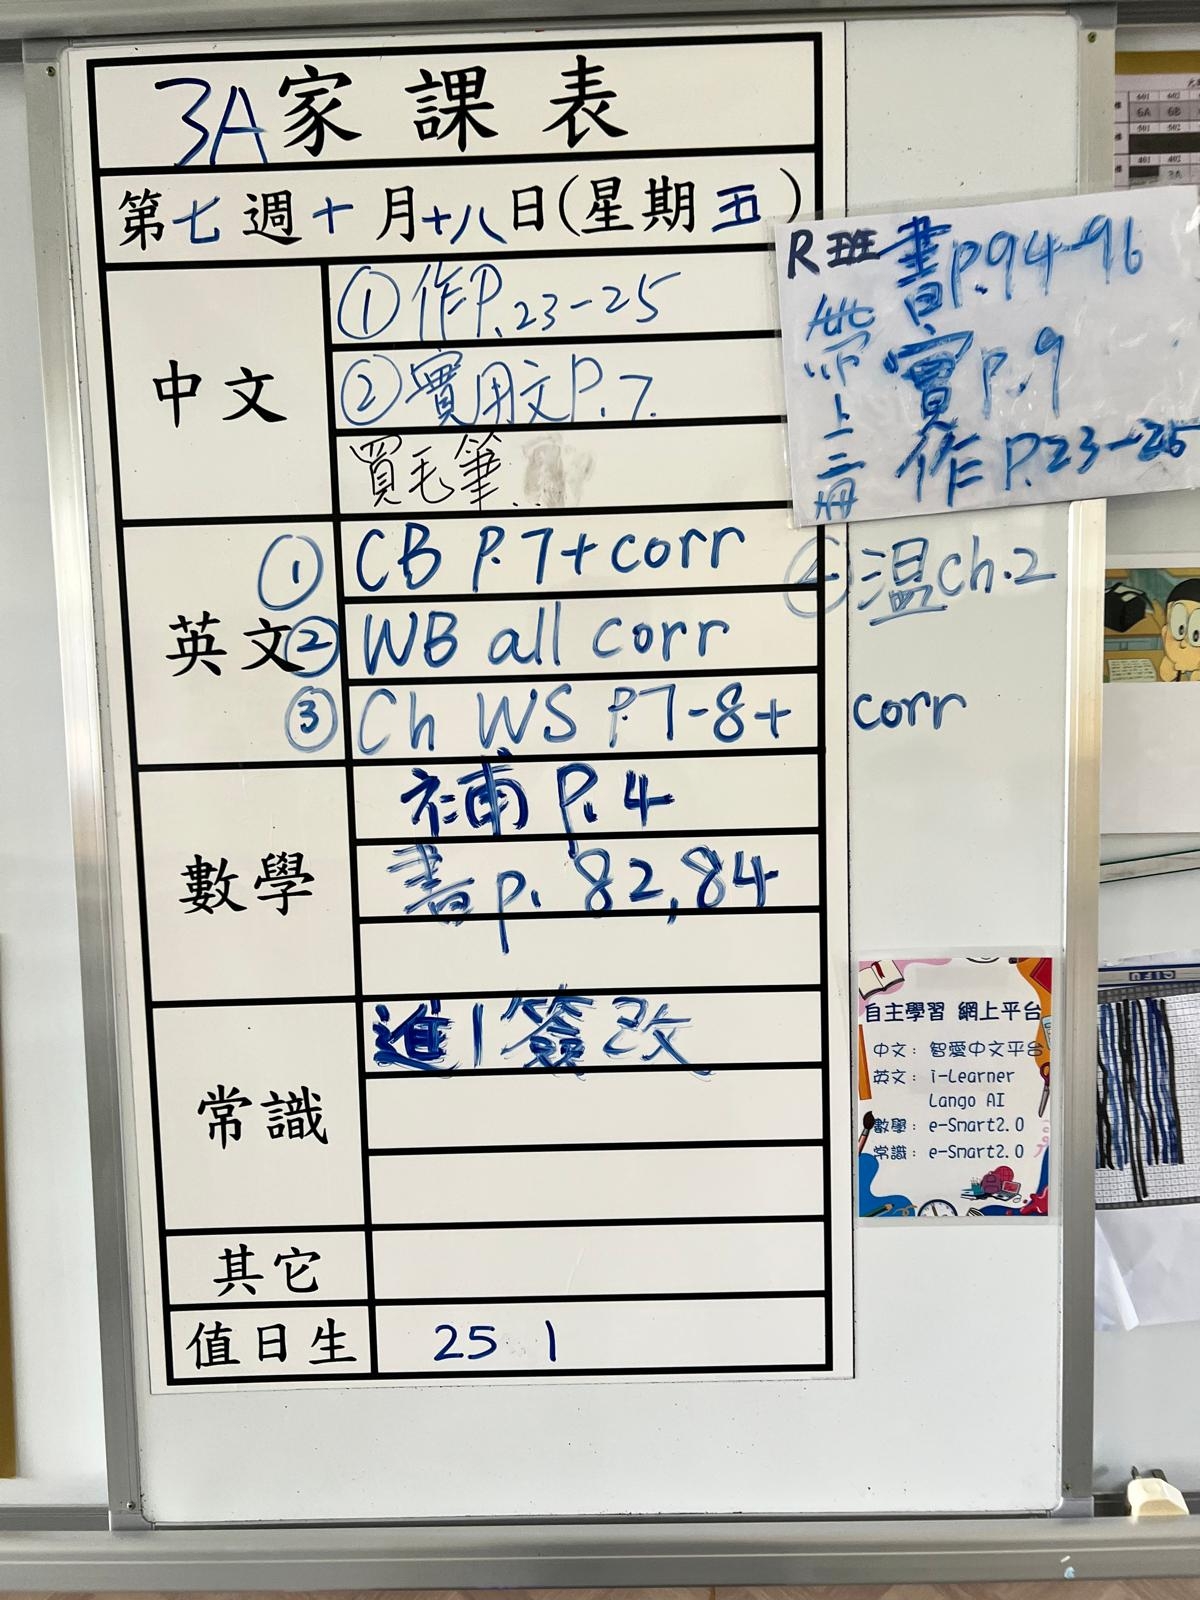 3A家課表
第七週十月十八日(星期五)
中文
①作P.23-25
②實用文P.7.
買毛筆
R班
書P.94-96
實P.9
作P.23-25
帶上三冊
英文
① CB P.7+corr
② WB all corr
③ Ch WS P.7-8+ corr
④溫Ch.2
數學
補P.4
書p. 82,84
常識
進1簽改
其它
值日生
25 1
自主學習 網上平台
中文: 智愛中文平台
英文: i-Learner
Lango AI
數學: e-Smart2.0
常識: e-Smart2.0
601 602
6A 6B
501 502
401 402
3A